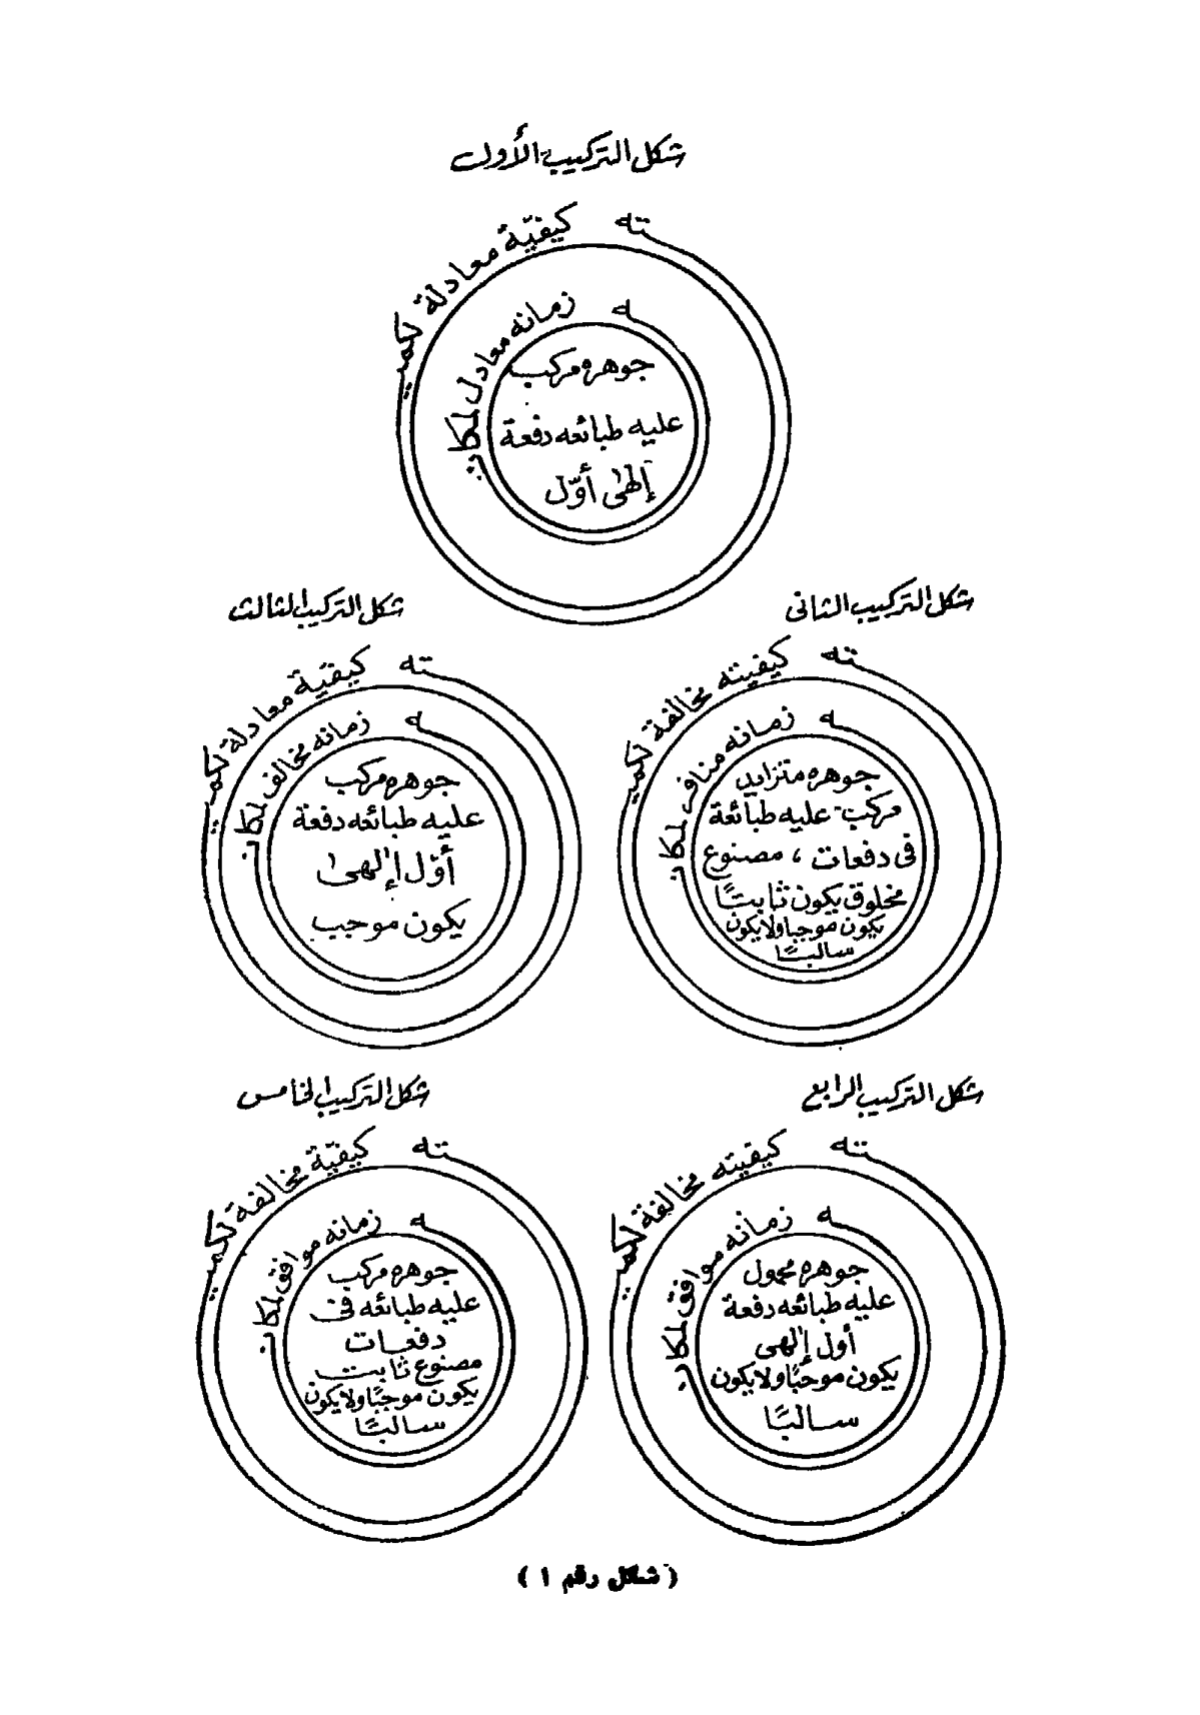 شكل التركيب الأول
كيفيّة معادلة لكميته
زمانه معادل لمكانه
جوهره مركب
عليه طبائعه دفعة
إلهى أوّل
شكل التركيب الثانى
كيفيته مخالفة لكميته
زمانه مناف لمكانه
جوهره متزايد
مركب عليه طبائعة
فى دفعات ، مصنوع
مخلوق يكون ثابتًا
يكون موجبا ولا يكون
سالبًا
شكل التركيب الثالث
كيفيّة معادلة لكميته
زمانه مخالف لمكانه
جوهره مركب
عليه طبائعه دفعة
أوّل إلهى
يكون موجب
شكل التركيب الرابع
كيفيته مخالفة لكميته
زمانه موافق لمكانه
جوهره محمول
عليه طبائعه دفعة
أول إلهى
يكون موجبًا ولا يكون
سالبًا
شكل التركيب الخامس
كيفيّة مخالفة لكميته
زمانه موافق لمكانه
جوهره مركب
عليه طبائعه فى
دفعات
مصنوع ثابت
يكون موجبًا ولا يكون
سالبًا
( شكل رقم ١ )